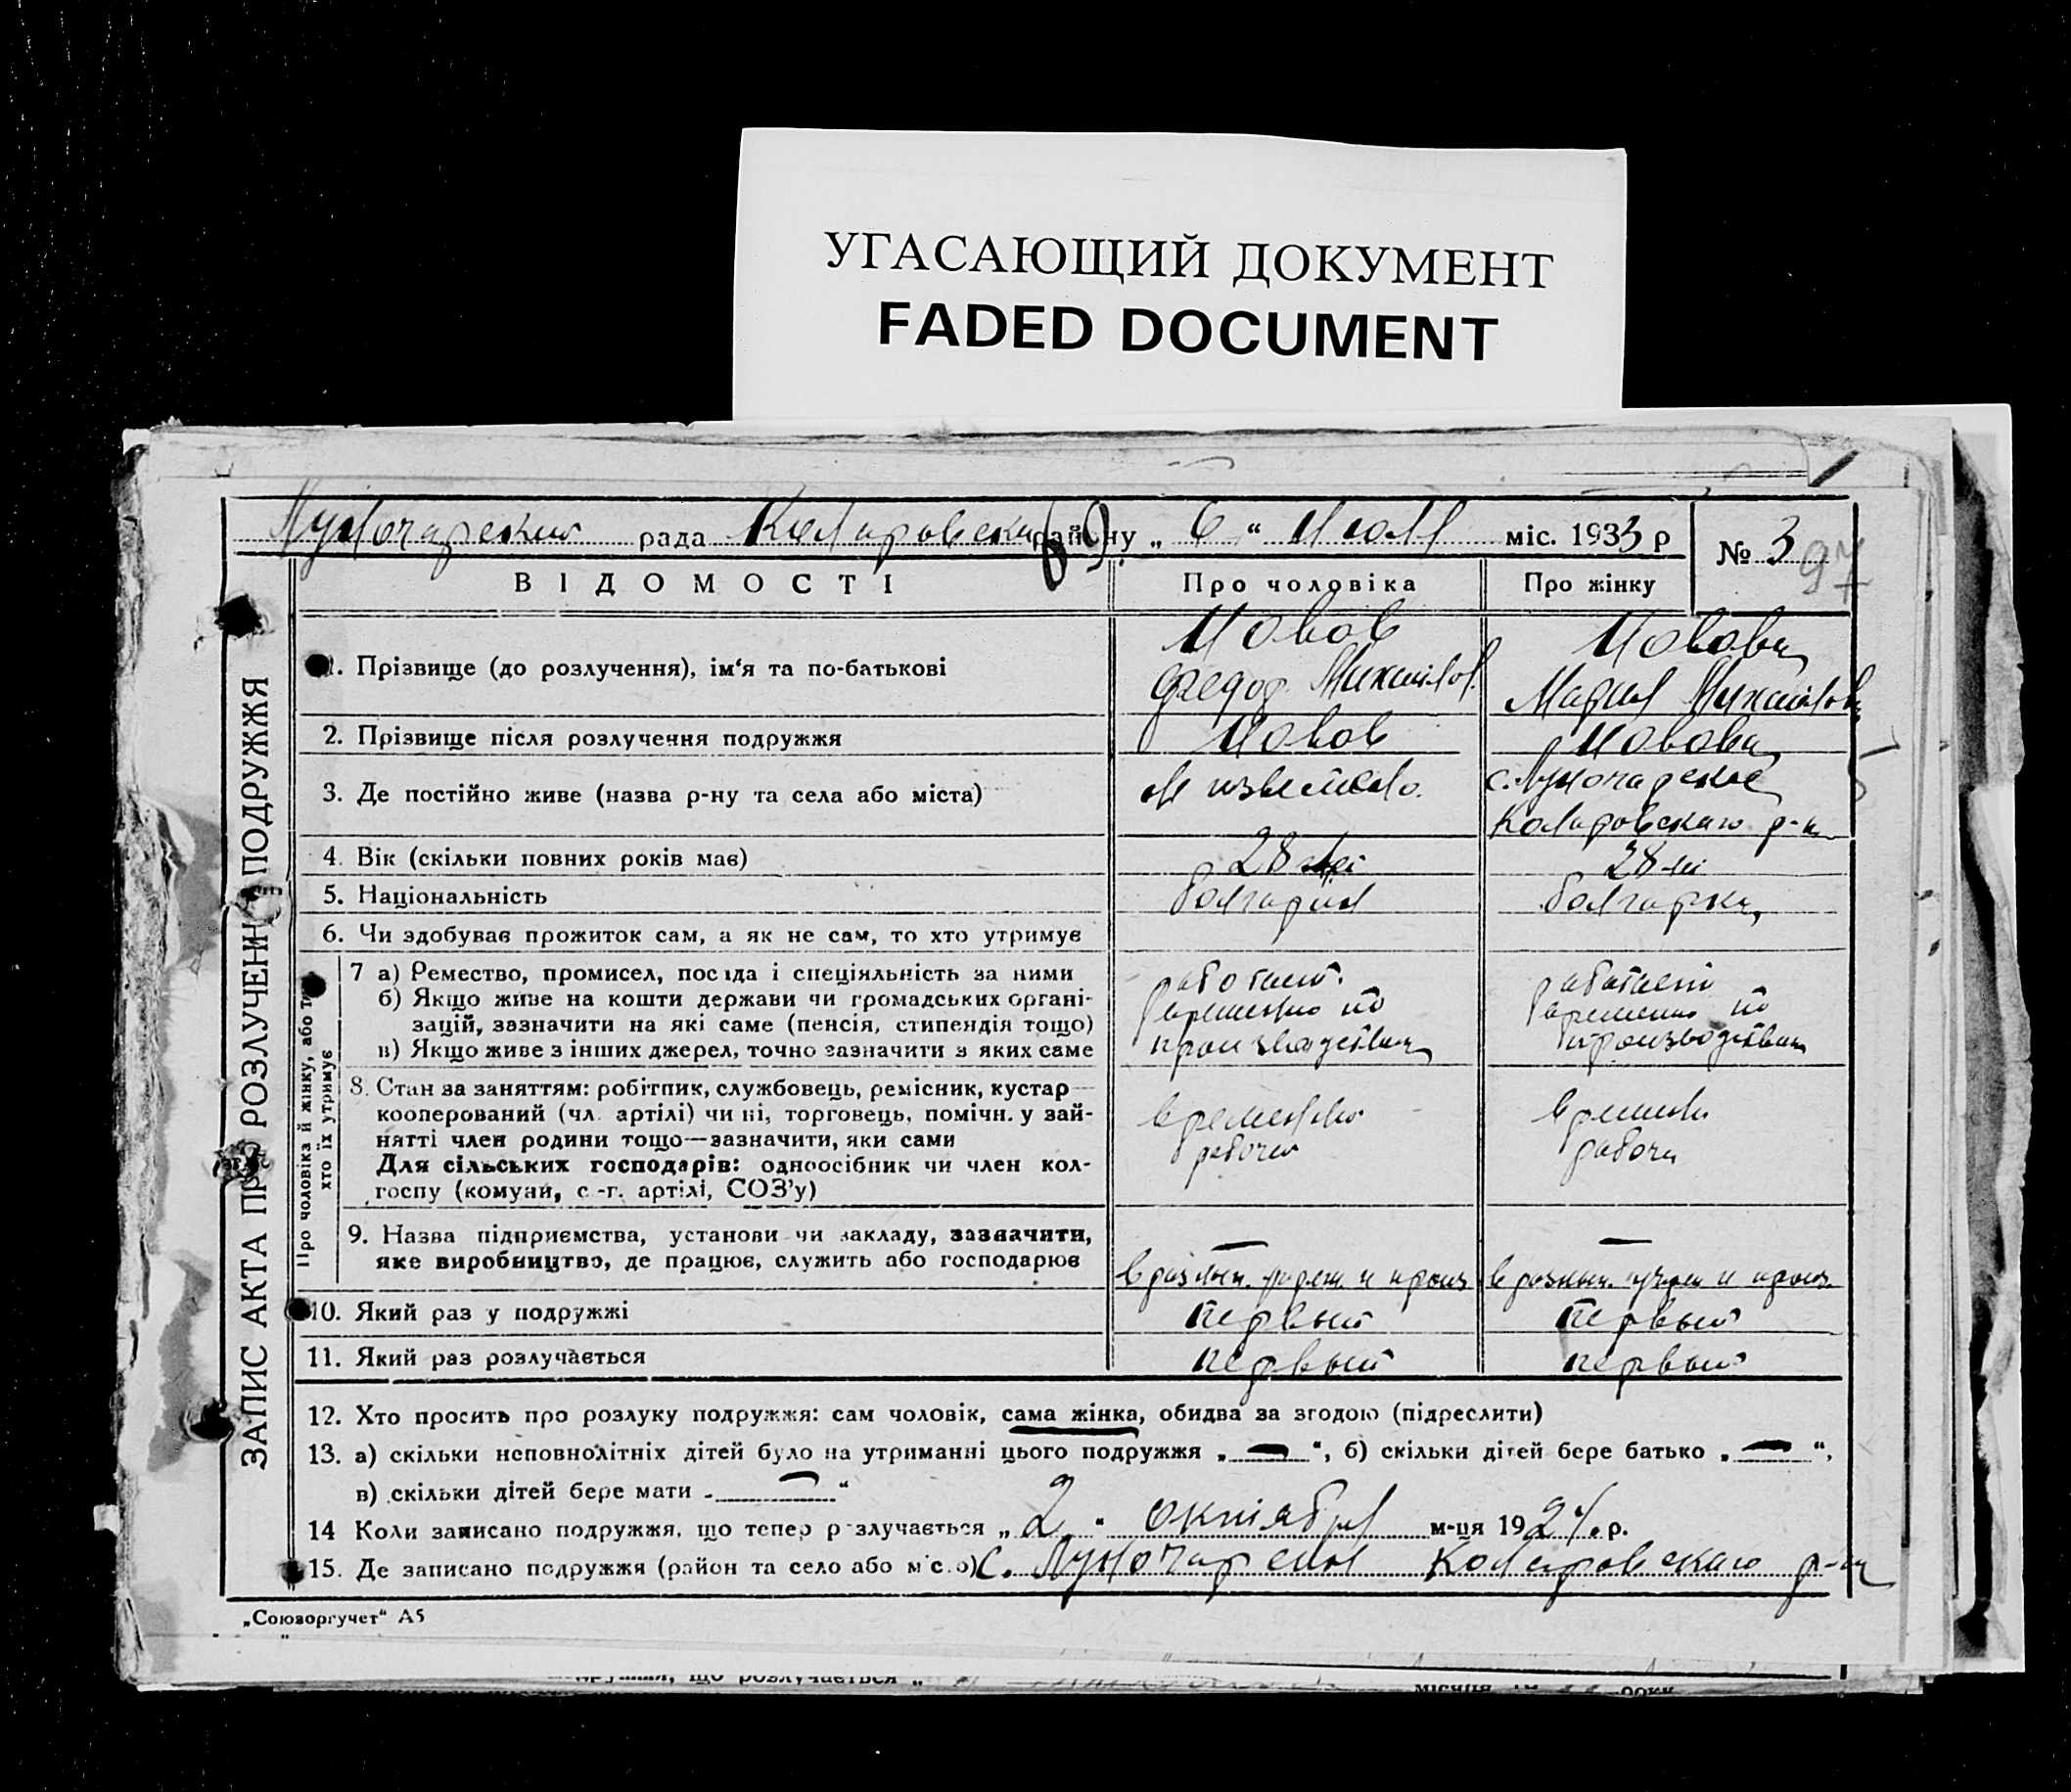 УГАСАЮЩИЙ ДОКУМЕНТ
FADED DOCUMENT
Луночарский рада Коларовский району „ 6 “ Июля міс. 1933 р № 3 97
ВІДОМОСТІ Про чоловіка Про жінку
ЗАПИС АКТА ПРО РОЗЛУЧЕННЯ ПОДРУЖЖЯ
1. Прізвище (до розлучення), ім‘я та по-батькові Федор Михайлов. Мария Михайлов
2. Прізвище після розлучення подружжя
3. Де постійно живе (назва р-ну та села або міста) не известно. с. Луночарское
Коларовскаго р-на
4. Вік (скільки повних років має) 28 лет 28 лет
5. Національність болгарин болгарка
6. Чи здобував прожиток сам, а як не сам, то хто утримує
Про чоловіка й жінку, або тих
хто їх утримує
7 а) Ремество, промисел, посада і спеціяльність за ними работает. работает
б) Якщо живе на кошти держави чи громадських органі- временно по временно по
зацій, зазначити на які саме (пенсія, стипендія тощо) производствам производствам
в) Якщо живе з інших джерел, точно зазначити з яких саме
8. Стан за заняттям: робітник, службовець, ремісник, кустар
кооперований (чл. артілі) чи ні, торговець, помічн. у зай- временно времено
нятті член родини тощо—зазначити, яки сами рабочий рабочи
Для сільських господарів: одноосібник чи член кол-
госпу (комуни, с.-г. артілі, СОЗ’у)
9. Назва підприємства, установи чи закладу, зазначити, — —
яке виробництво, де працює, служить або господарює в разных. и произ в разных. и произ.
10. Який раз у подружжі первый первый
11. Який раз розлучається первый первый
12. Хто просить про розлуку подружжя: сам чоловік, сама жінка, обидва за згодою (підреслити)
13. а) скільки неповнолітніх дітей було на утриманні цього подружжя „ — “, б) скільки дітей бере батько „ — “,
в) скільки дітей бере мати - — “
14 Коли записано подружжя, що тепер розлучається „ 2 “ октября м-ця 1924. р.
15. Де записано подружжя (район та село або місто) с. Луночарския Коларовскаго р-на
„Союзоргучет“ А5
що розлучається „
місяця 19 року